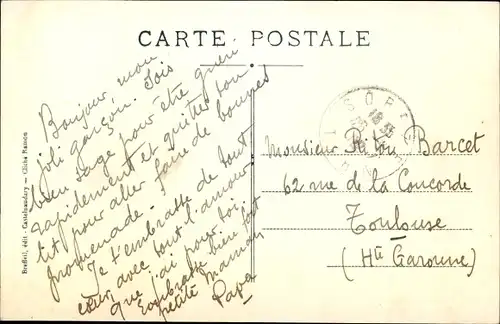 CARTE POSTALE
Bonjour mon
joli garçon. Sois
bien sage pour être guéri
rapidement et quitter ton
lit pour aller faire de bonnes
promenade.
Je t'embrasse de tout
cœur avec tout l'amour
que j'ai pour toi,
Embrasse bien fort
petite maman
Papa
Monsieur Pitou Barcet
62 rue de la Concorde
Toulouse
(Hte Garonne)
Breffeil, édit. - Castelnaudary - Cliché Ramon
SORE